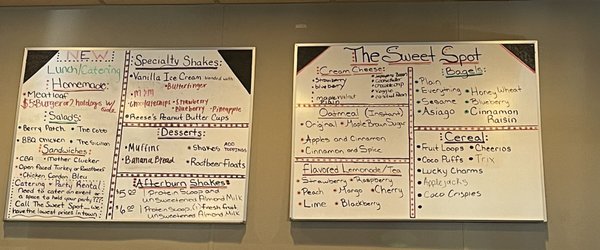 NEW
Lunch/Catering
Homemade
Meatloaf
$5 Burger or 2 hotdogs w/
Salads:
Berry Patch • The Cobb
BBQ Chicken
Sandwiches
CBA • Mother Clucker
Open faced Turkey or Roastbeef
Chicken Cordon Bleu
Catering • Party Rental
Need us to cater an event
a space to hold your party
Call The Sweet Spot... we
have the lowest prices in town
Specialty Shakes:
Vanilla Ice Cream blended with
• Butterfinger
• M&M
• Strawberry
• Blueberry • Pineapple
• Reese's Peanut Butter Cups
Desserts:
• Muffins
• Shakes
• Banana Bread
• Rootbeer Floats
Afterburn Shakes
$5.00 1 Protein Scoop and
unsweetened Almond Milk
$6.00 1 Protein Scoop, fresh fruit
unsweetened Almond Milk
The Sweet Spot
Cream Cheese:
• Strawberry
• blueberry
Oatmeal (Instant)
• Original • Maple Brown Sugar
• Apples and Cinnamon
• Cinnamon and Spice
Flavored Lemonade/Tea
• Strawberry • Raspberry
• Peach • Mango • Cherry
• Lime • Blackberry
Bagels:
• Plain
• Everything • Honey Wheat
• Sesame • Blueberry
• Asiago • Cinnamon
Raisin
Cereal:
• Fruit Loops • Cheerios
• Coco Puffs • Trix
• Lucky Charms
• Applejacks
• Coco Crispies